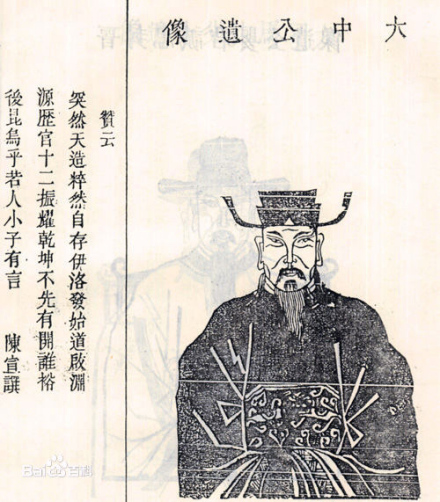 大中公遺像
贊云
突然天造粹然自存伊洛發始道啟淵
源歷官十二振耀乾坤不先有開誰裕
後昆烏乎若人小子有言 陳宣譔
Bai百科